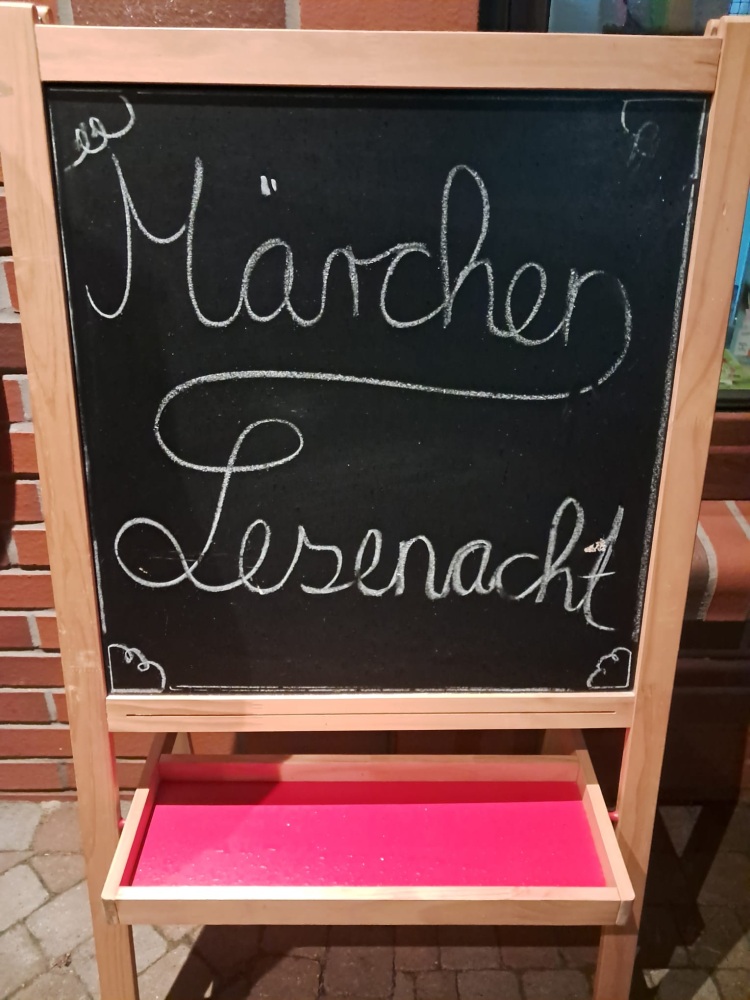 Märchen
Lesenacht